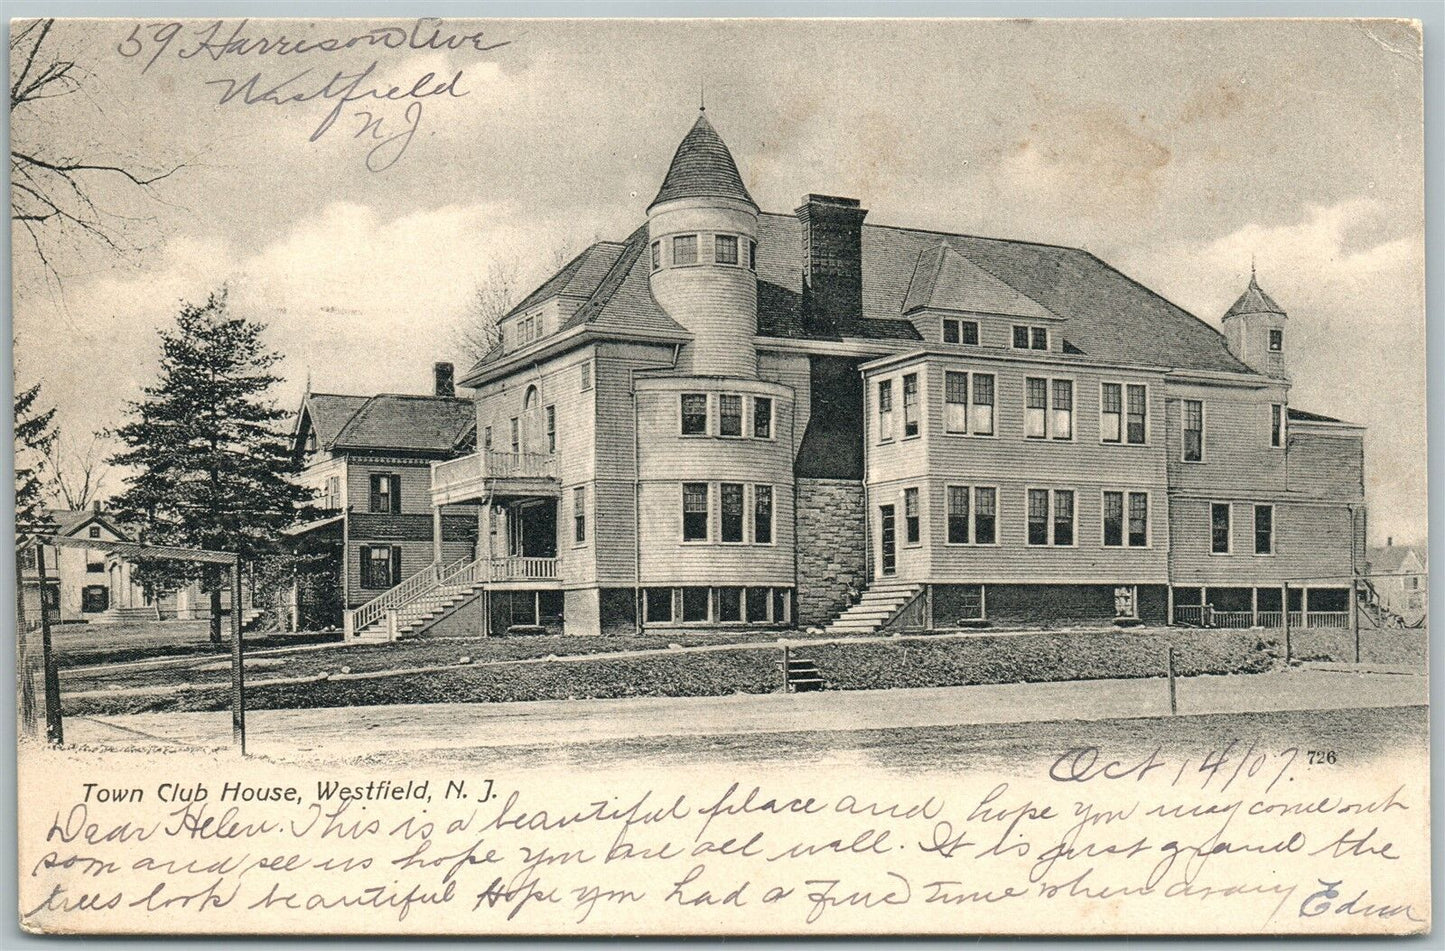 59 Harrison Ave
Westfield
N.J.
Oct 14/07.
726
Town Club House, Westfield, N. J.
Dear Helen. This is a beautiful place and hope you may come out
som and see us hope you are all well. It is just grand the
trees look beautiful Hope you had a fine time when away Edna